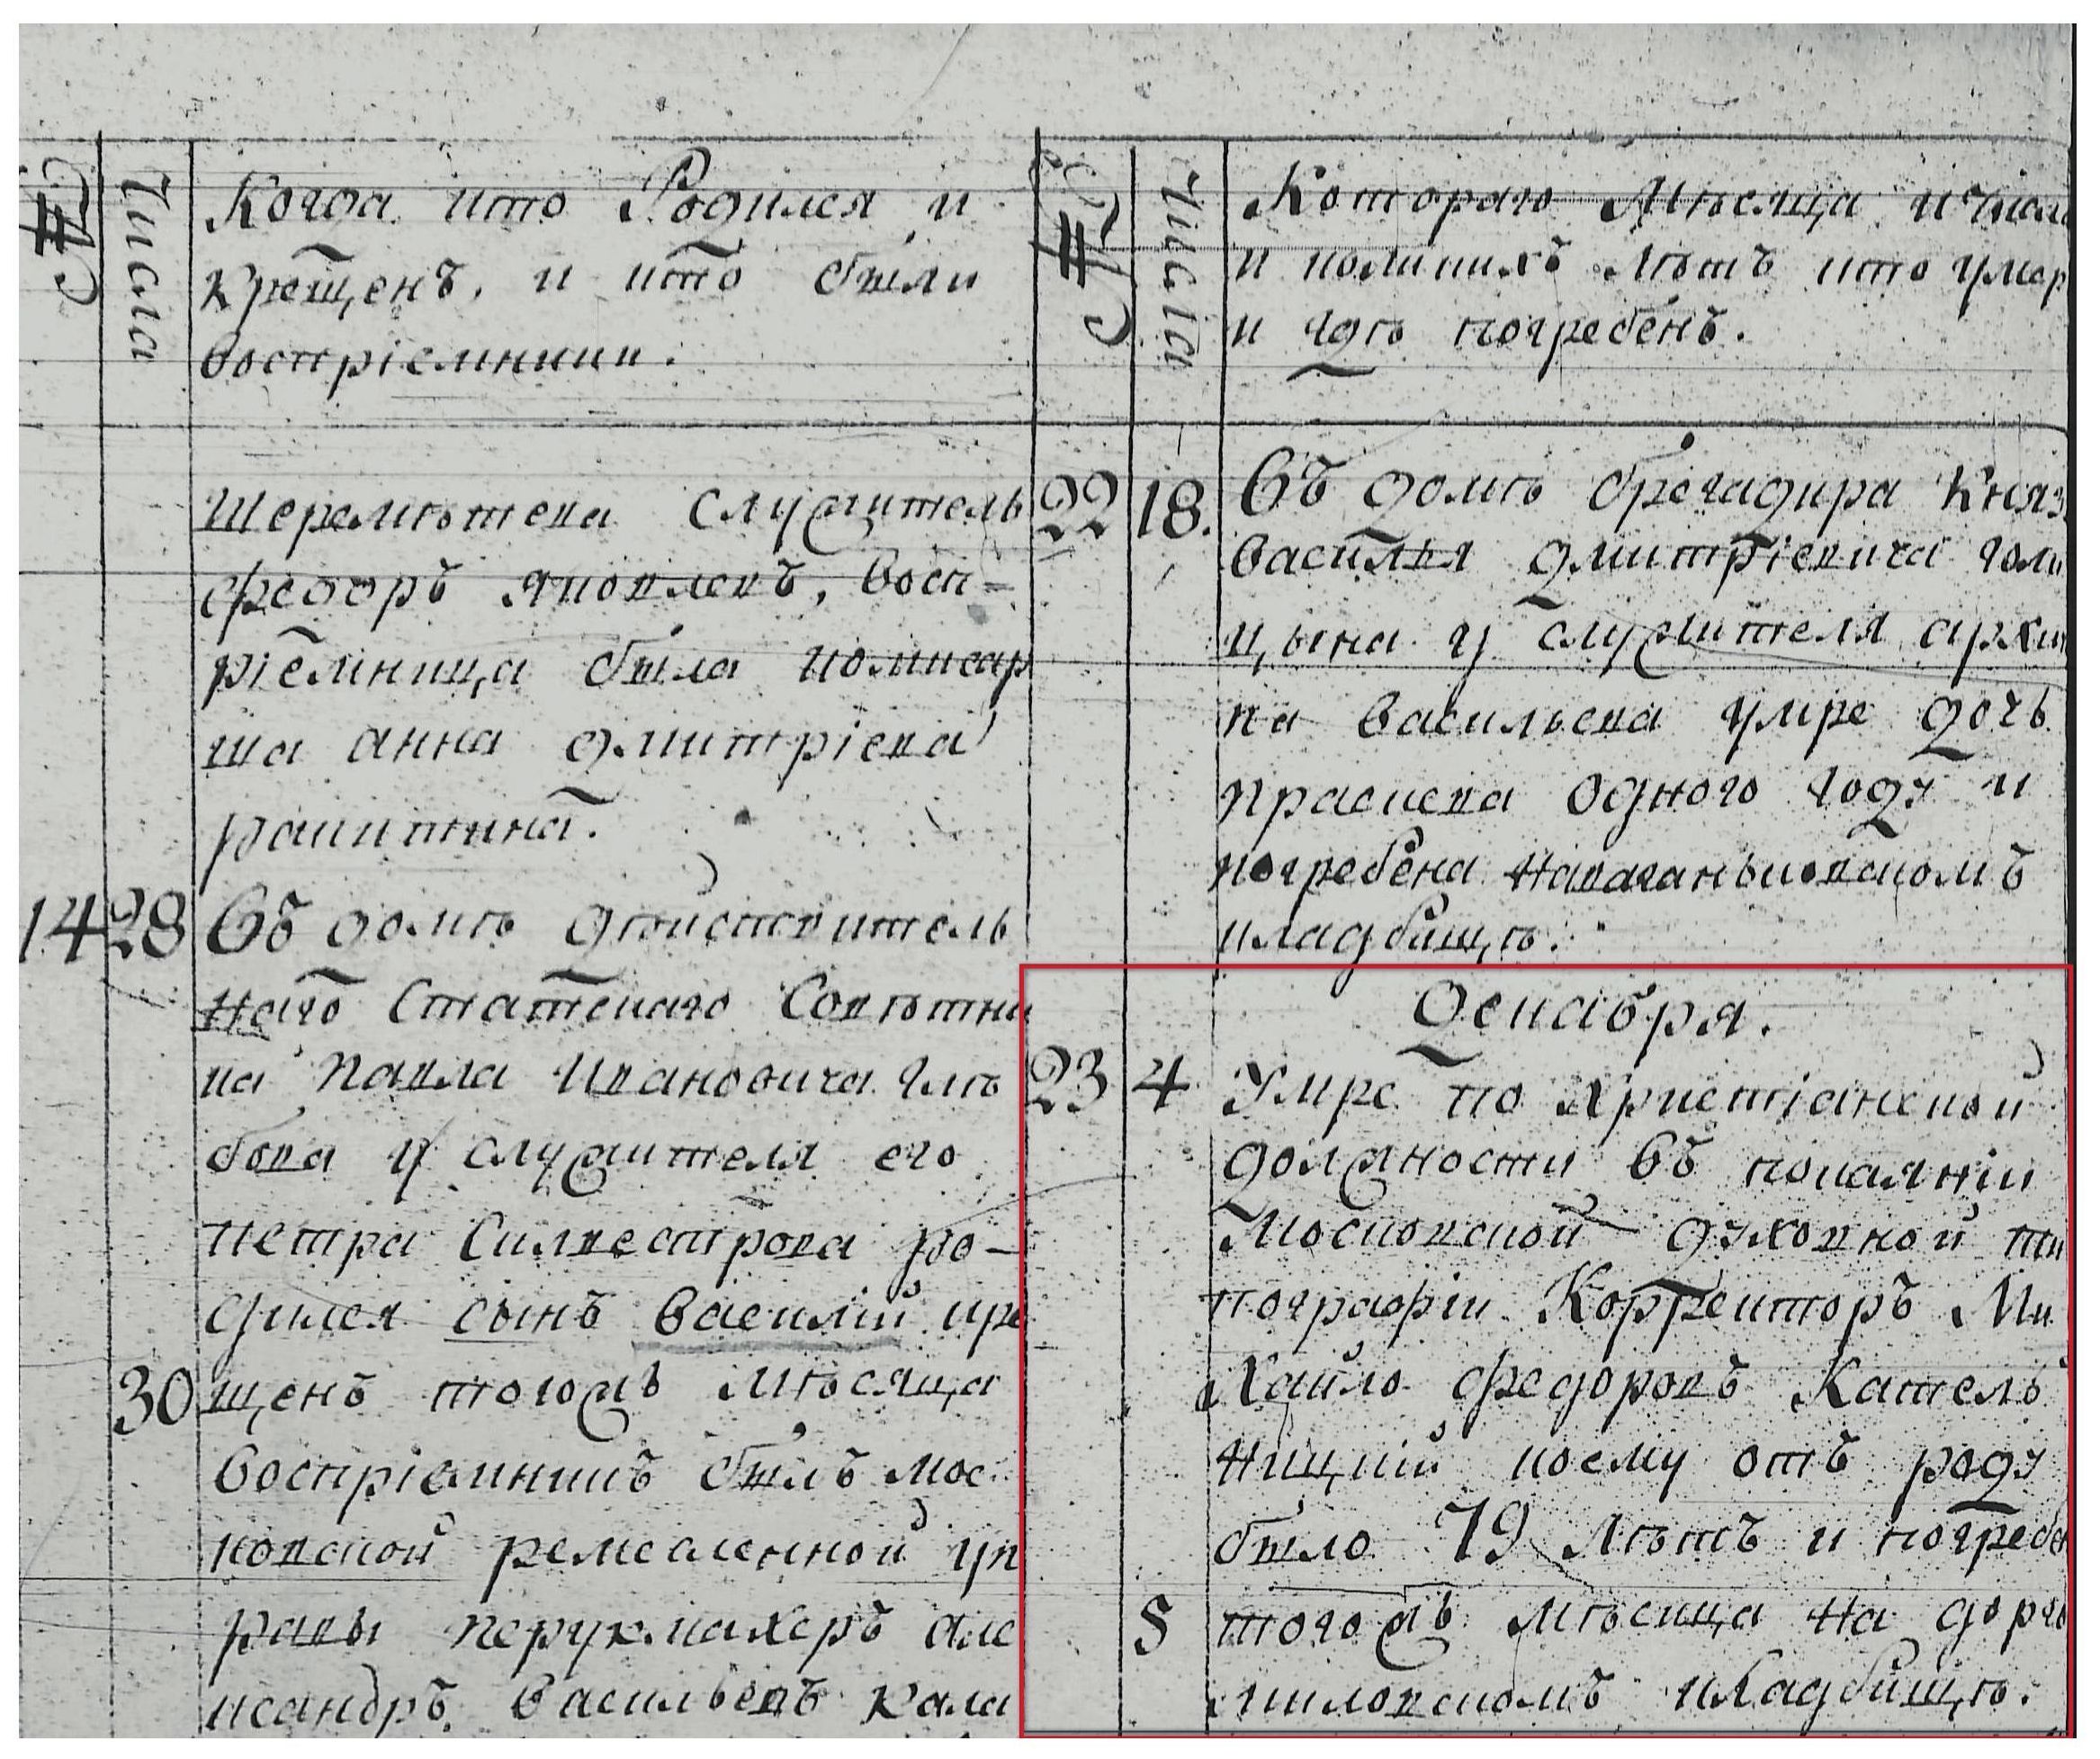 №
Числа
Когда кто Родился и
крещенъ, и кто были
воспріемники.
Шереметева служитель
федоръ яковлевъ, восп-
ріемница была комисар
ша анна дмитріева
14 28 Въ домѣ дѣйствитель
наго Статскаго Совѣтни
ка Павла Ивановича глѣ
бова у служителя его
петра Силвестрова ро-
дился сынъ василій кре
30 щенъ тогожъ мѣсяца
воспріемникъ былъ мос
ковской ремесленной уп
равы перукмахеръ але
ксандръ васильевъ кала
№
Числа
Котораго Мѣсяца и числа
и коликихъ лѣтъ кто умер
и гдѣ погребенъ.
22 18. Въ домѣ брегадира Княз
василья дмитріевича голи
цына у служителя архи
па васильева умре дочь
праскева одного году и
погребена наваганьковскомъ
кладбищѣ.
Декабря.
23 4 Умре по христіанской
должности въ покаяніи
Московской духовной ти
пографіи Корректоръ Ми
хайло федоровъ Катель
ницкій коему отъ роду
было 79 лѣтъ и погребе
5 тогожъ мѣсяца на дорго
миловскомъ кладбищѣ.